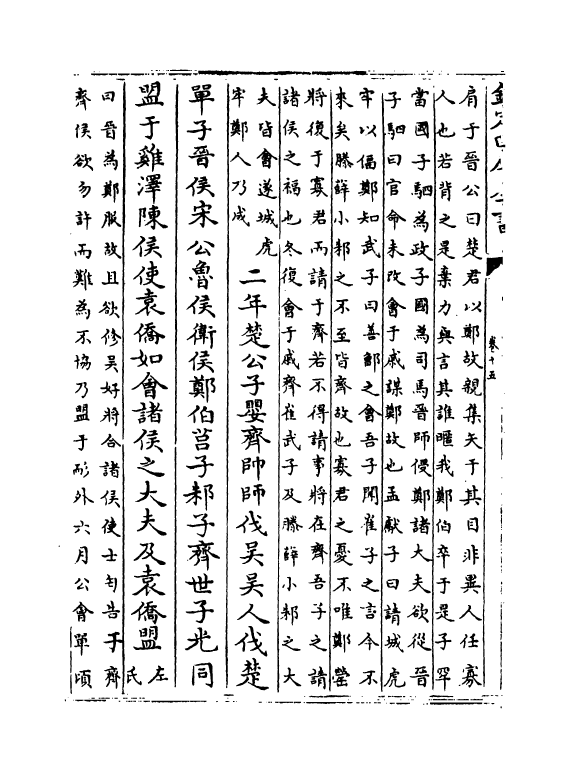 欽定四庫全書
卷十五
肩于晉公曰楚君以鄭故親集矢于其目非異人任寡
人也若背之是棄力與言其誰暱我鄭伯卒于是子罕
當國子駟為政子國為司馬晉師侵鄭諸大夫欲從晉
子駟曰官命未改會于戚謀鄭故也孟獻子曰請城虎
牢以偪鄭知武子曰善鄫之會吾子聞崔子之言今不
來矣滕薛小邾之不至皆齊故也寡君之憂不唯鄭罃
將復于寡君而請于齊若不得請事將在齊吾子之請
諸侯之福也冬復會于戚齊崔武子及滕薛小邾之大
夫皆會遂城虎
牢鄭人乃成
二年楚公子嬰齊帥師伐吳吳人伐楚
單子晉侯宋公魯侯衛侯鄭伯莒子邾子齊世子光同
盟于雞澤陳侯使袁僑如會諸侯之大夫及袁僑盟
左
氏
曰晉為鄭服故且欲修吳好將合諸侯使士匄告于齊
齊侯欲勿許而難為不協乃盟于耏外六月公會單頃